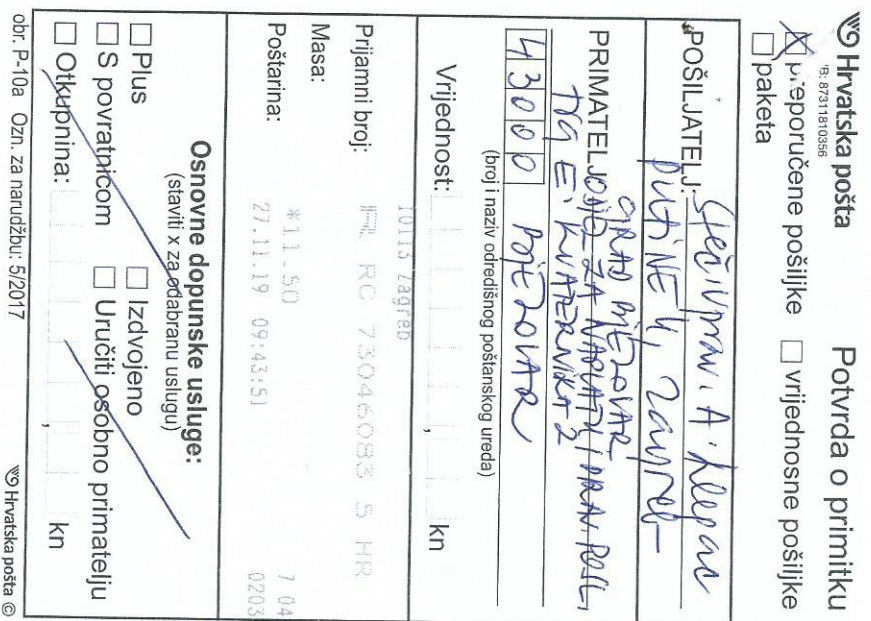 Hrvatska pošta
Potvrda o primitku
°B: 87311810356
preporučene pošiljke
vrijednosne pošiljke
paketa
POŠILJATELJ:
A. Klepac
4, Zagreb
PRIMATELJ:
GRAD BJELOVAR
ODJEL ZA NAPLATU I PRAV. POSL.
TRG E. KVATERNIKA 2
43000 BJELOVAR
(broj i naziv odredišnog poštanskog ureda)
Vrijednost: , kn
10113 Zagreb
Prijamni broj: RC 73046083 5 HR
Masa:
Poštarina: *11.50 7 04
27.11.19 09:43:51 0203
Osnovne dopunske usluge:
(staviti x za odabranu uslugu)
Plus
Izdvojeno
S povratnicom
Uručiti osobno primatelju
Otkupnina: , kn
obr. P-10a Ozn. za narudžbu: 5/2017
Hrvatska pošta ©